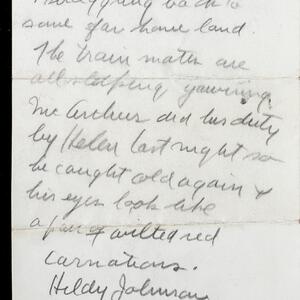 back to
some far home land.
The train mates are
all sleeping yawning.
Mr Archer did his duty
by Helen last night so
he caught cold again &
his eyes look like
a pair of wilted red
carnations.
Hildy Johnson